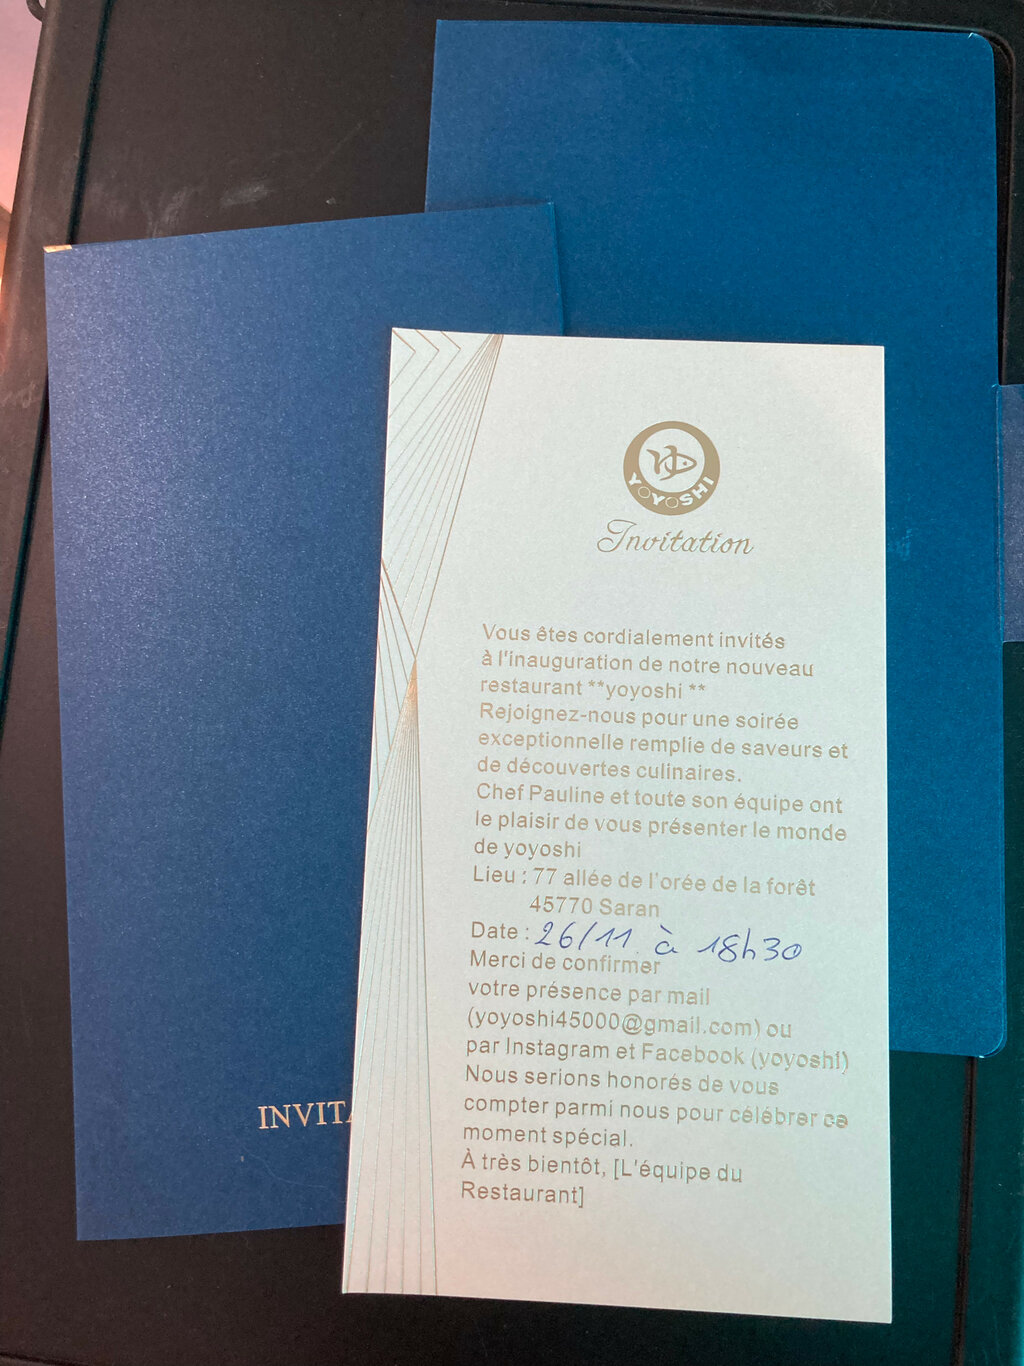 YOYOSHI
Invitation
Vous êtes cordialement invités
à l'inauguration de notre nouveau
restaurant **yoyoshi **
Rejoignez-nous pour une soirée
exceptionnelle remplie de saveurs et
de découvertes culinaires.
Chef Pauline et toute son équipe ont
le plaisir de vous présenter le monde
de yoyoshi
Lieu : 77 allée de l'orée de la forêt
45770 Saran
Date : 26/11 à 18h30
Merci de confirmer
votre présence par mail
(yoyoshi45000@gmail.com) ou
par Instagram et Facebook (yoyoshi)
Nous serions honorés de vous
compter parmi nous pour célébrer ce
moment spécial.
À très bientôt, [L'équipe du
Restaurant]
INVITA